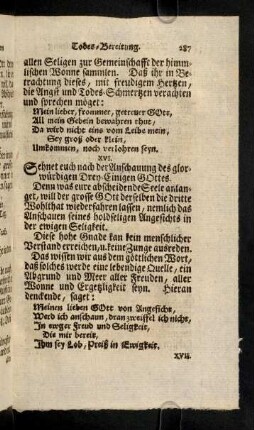 Todes-Bereitung. 287
allen Seligen zur Gemeinschafft der himm-
lischen Wonne sammlen. Daß ihr in Be-
trachtung dieses, mit freudigem Hertzen,
die Angst und Todes-Schmertzen verachten
und sprechen möget:
Mein lieber, frommer, getreuer GOtt,
All mein Gebein bewahren thut,
Da wird nicht eins vom Leibe mein,
Sey groß oder klein,
Umkommen, noch verlohren seyn.
XVI.
Sehnet euch nach der Anschauung des glor-
würdigen Drey-Einigen GOttes.
Denn was eure abscheidende Seele anlan-
get, will der grosse GOtt derselben die dritte
Wohlthat wiederfahren lassen, nemlich das
Anschauen seines holdseligen Angesichts in
der ewigen Seligkeit.
Diese hohe Gnade kan kein menschlicher
Verstand erreichen, u. keine Zunge ausreden.
Das wissen wir aus dem göttlichen Wort,
daß solches werde eine lebendige Quelle, ein
Abgrund und Meer aller Freuden, aller
Wonne und Ergetzligkeit seyn. Hieran
denckende, saget:
Meinen lieben GOtt von Angesicht,
Werd ich anschaun, dran zweiffel ich nicht,
In ewger Freud und Seligkeit,
Die mir bereit,
Ihm sey Lob, Preiß in Ewigkeit.
XVII.